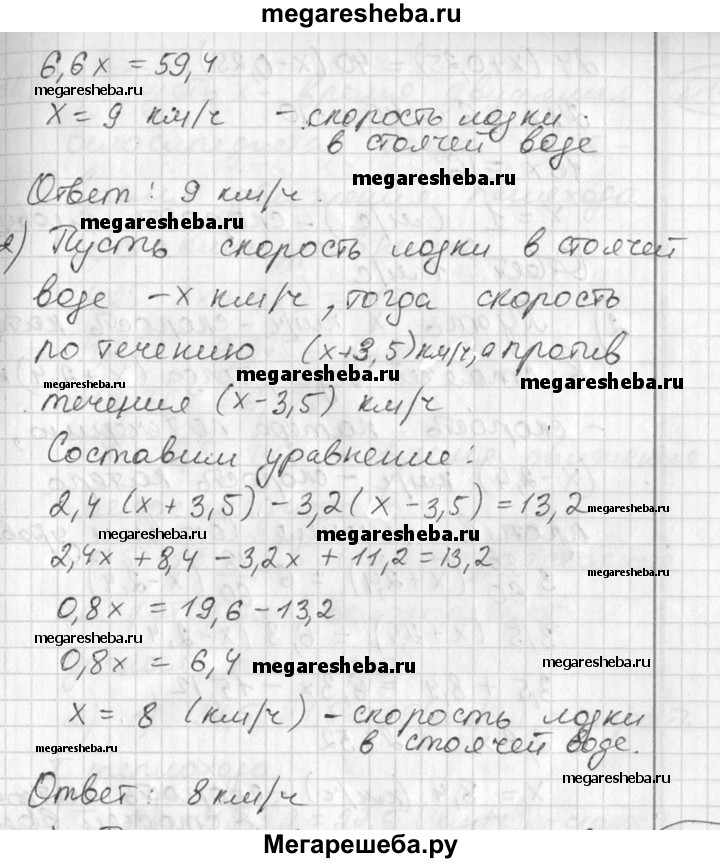 megaresheba.ru
6,6x = 59,4
megaresheba.ru
x = 9 км/ч - скорость лодки
в стоячей воде
megaresheba.ru
Ответ: 9 км/ч.
megaresheba.ru
2) Пусть скорость лодки в стоячей
воде - x км/ч, тогда скорость
по течению (x+3,5) км/ч, а против
megaresheba.ru megaresheba.ru megaresheba.ru
течения (x-3,5) км/ч
Составим уравнение:
2,4 (x + 3,5) - 3,2 (x - 3,5) = 13,2
megaresheba.ru
megaresheba.ru megaresheba.ru
2,4x + 8,4 - 3,2x + 11,2 = 13,2
megaresheba.ru
0,8x = 19,6 - 13,2
megaresheba.ru
0,8x = 6,4
megaresheba.ru megaresheba.ru
x = 8 (км/ч) - скорость лодки
megaresheba.ru
в стоячей воде.
megaresheba.ru
Ответ: 8 км/ч
Мегарешеба.ру